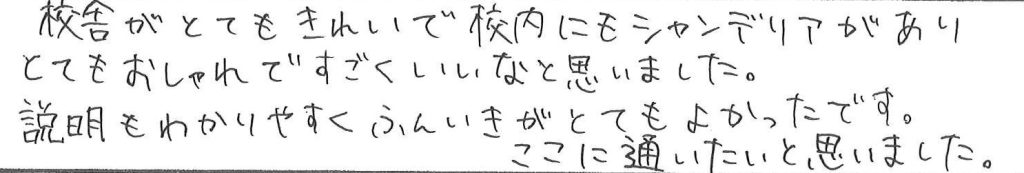 校舎がとてもきれいで校内にもシャンデリアがあり
とてもおしゃれですごくいいなと思いました。
説明もわかりやすくふんいきがとてもよかったです。
ここに通いたいと思いました。